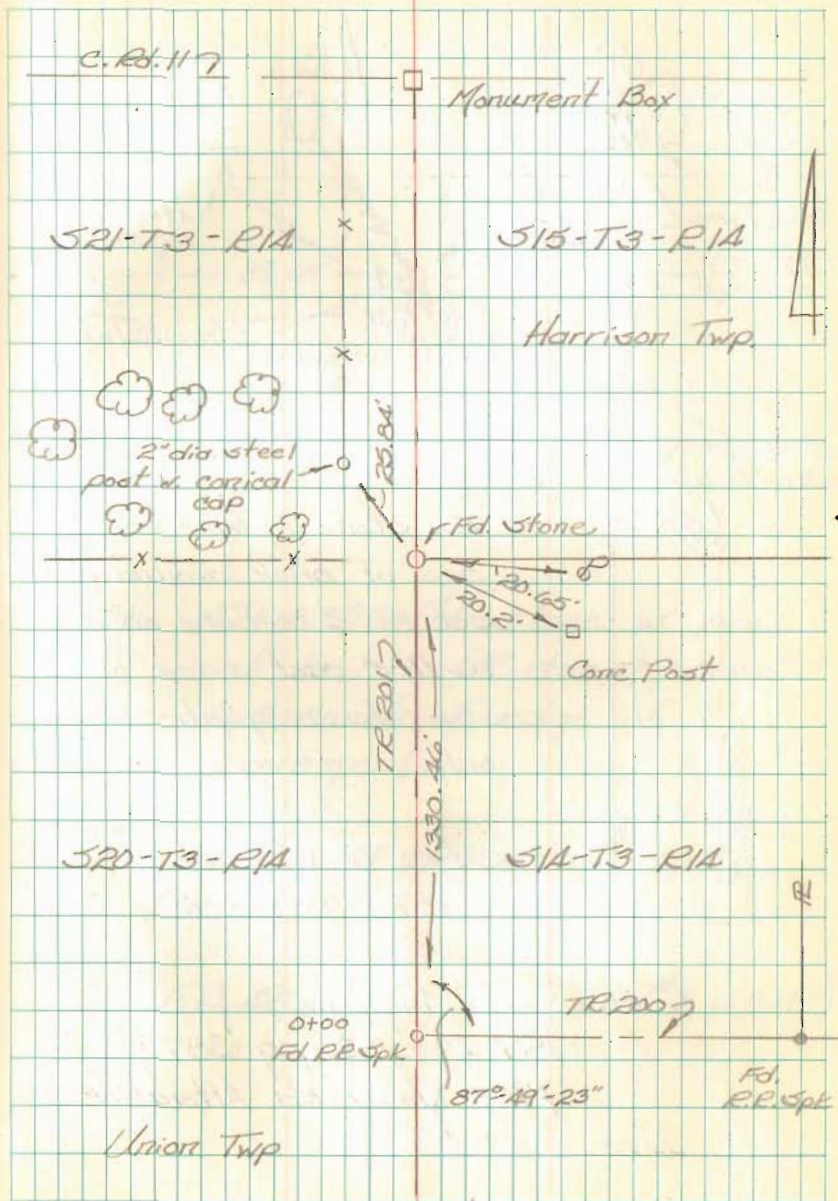 C. Rd. 117
Monument Box
S21-T3-R14
S15-T3-R14
Harrison Twp.
25.84'
2" dia. steel
post w. conical
cap
Fd. Stone
20.65'
20.2'
Conc. Post
TR 201
1330.46'
S20-T3-R14
S14-T3-R14
PL
TR 200
0+00
Fd. R.R. Spk
87°-49'-23"
Fd.
R.R. Spk
Union Twp